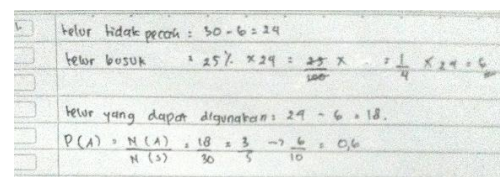 telur tidak pecah : 30 - 6 = 24
telur busuk : 25% × 24 = 25/100 × = 1/4 × 24 = 6
telur yang dapat digunakan : 24 - 6 = 18.
P(A) = N(A)/N(S) = 18/30 = 3/5 → 6/10 = 0,6